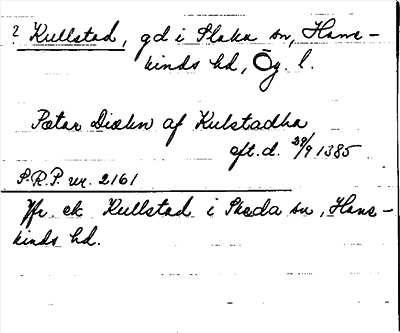 ? Kullstad, gd i Slaka sn, Hane-
kinds hd, Ög. l.
Pætar Diækn af Kulstadha
eft. d. 29/9 1385
S.R.P. nr. 2161
Jfr. ek Kullstad i Skeda sn, Hane-
kinds hd.